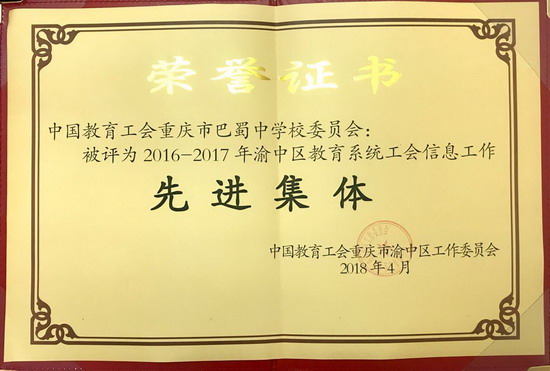 荣誉证书
中国教育工会重庆市巴蜀中学校委员会：
被评为2016-2017年渝中区教育系统工会信息工作
先进集体
中国教育工会重庆市渝中区工作委员会
2018年4月